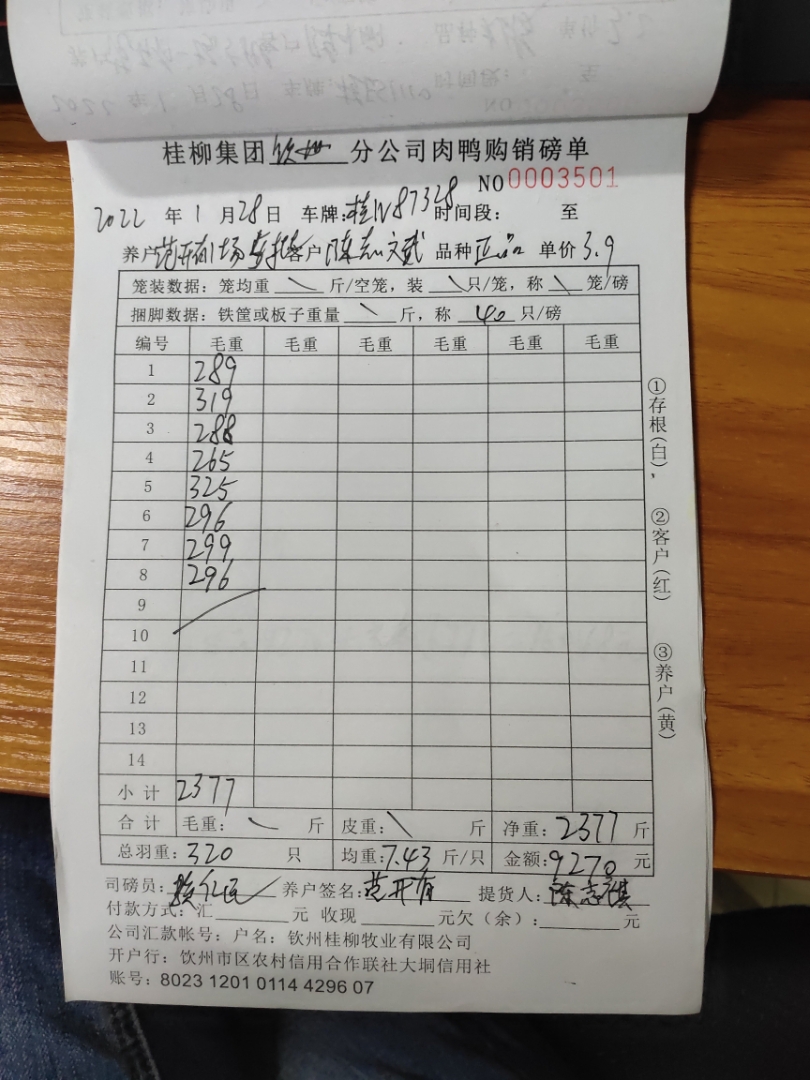 桂柳集团钦州分公司肉鸭购销磅单
NO0003501
2022年1月28日 车牌:桂N87328时间段: 至
养户范开有1场 客户陈志文武 品种正品 单价3.9
笼装数据:笼均重 \ 斤/空笼,装 \ 只/笼,称 \ 笼/磅
捆脚数据:铁筐或板子重量 \ 斤,称 40 只/磅
编号 毛重 毛重 毛重 毛重 毛重 毛重
1 289
2 319
3 288
4 265
5 325
6 296
7 299
8 296
9
10
11
12
13
14
小计 2377
合计 毛重: \ 斤 皮重: \ 斤 净重:2377斤
总羽重:320 只 均重:7.43斤/只 金额:9270元
司磅员: 养户签名:范开有 提货人:陈志祺
付款方式:汇 元 收现 元欠(余): 元
公司汇款帐号:户名:钦州桂柳牧业有限公司
开户行:钦州市区农村信用合作联社大垌信用社
账号:8023 1201 0114 4296 07
①存根(白),
②客户(红)
③养户(黄)